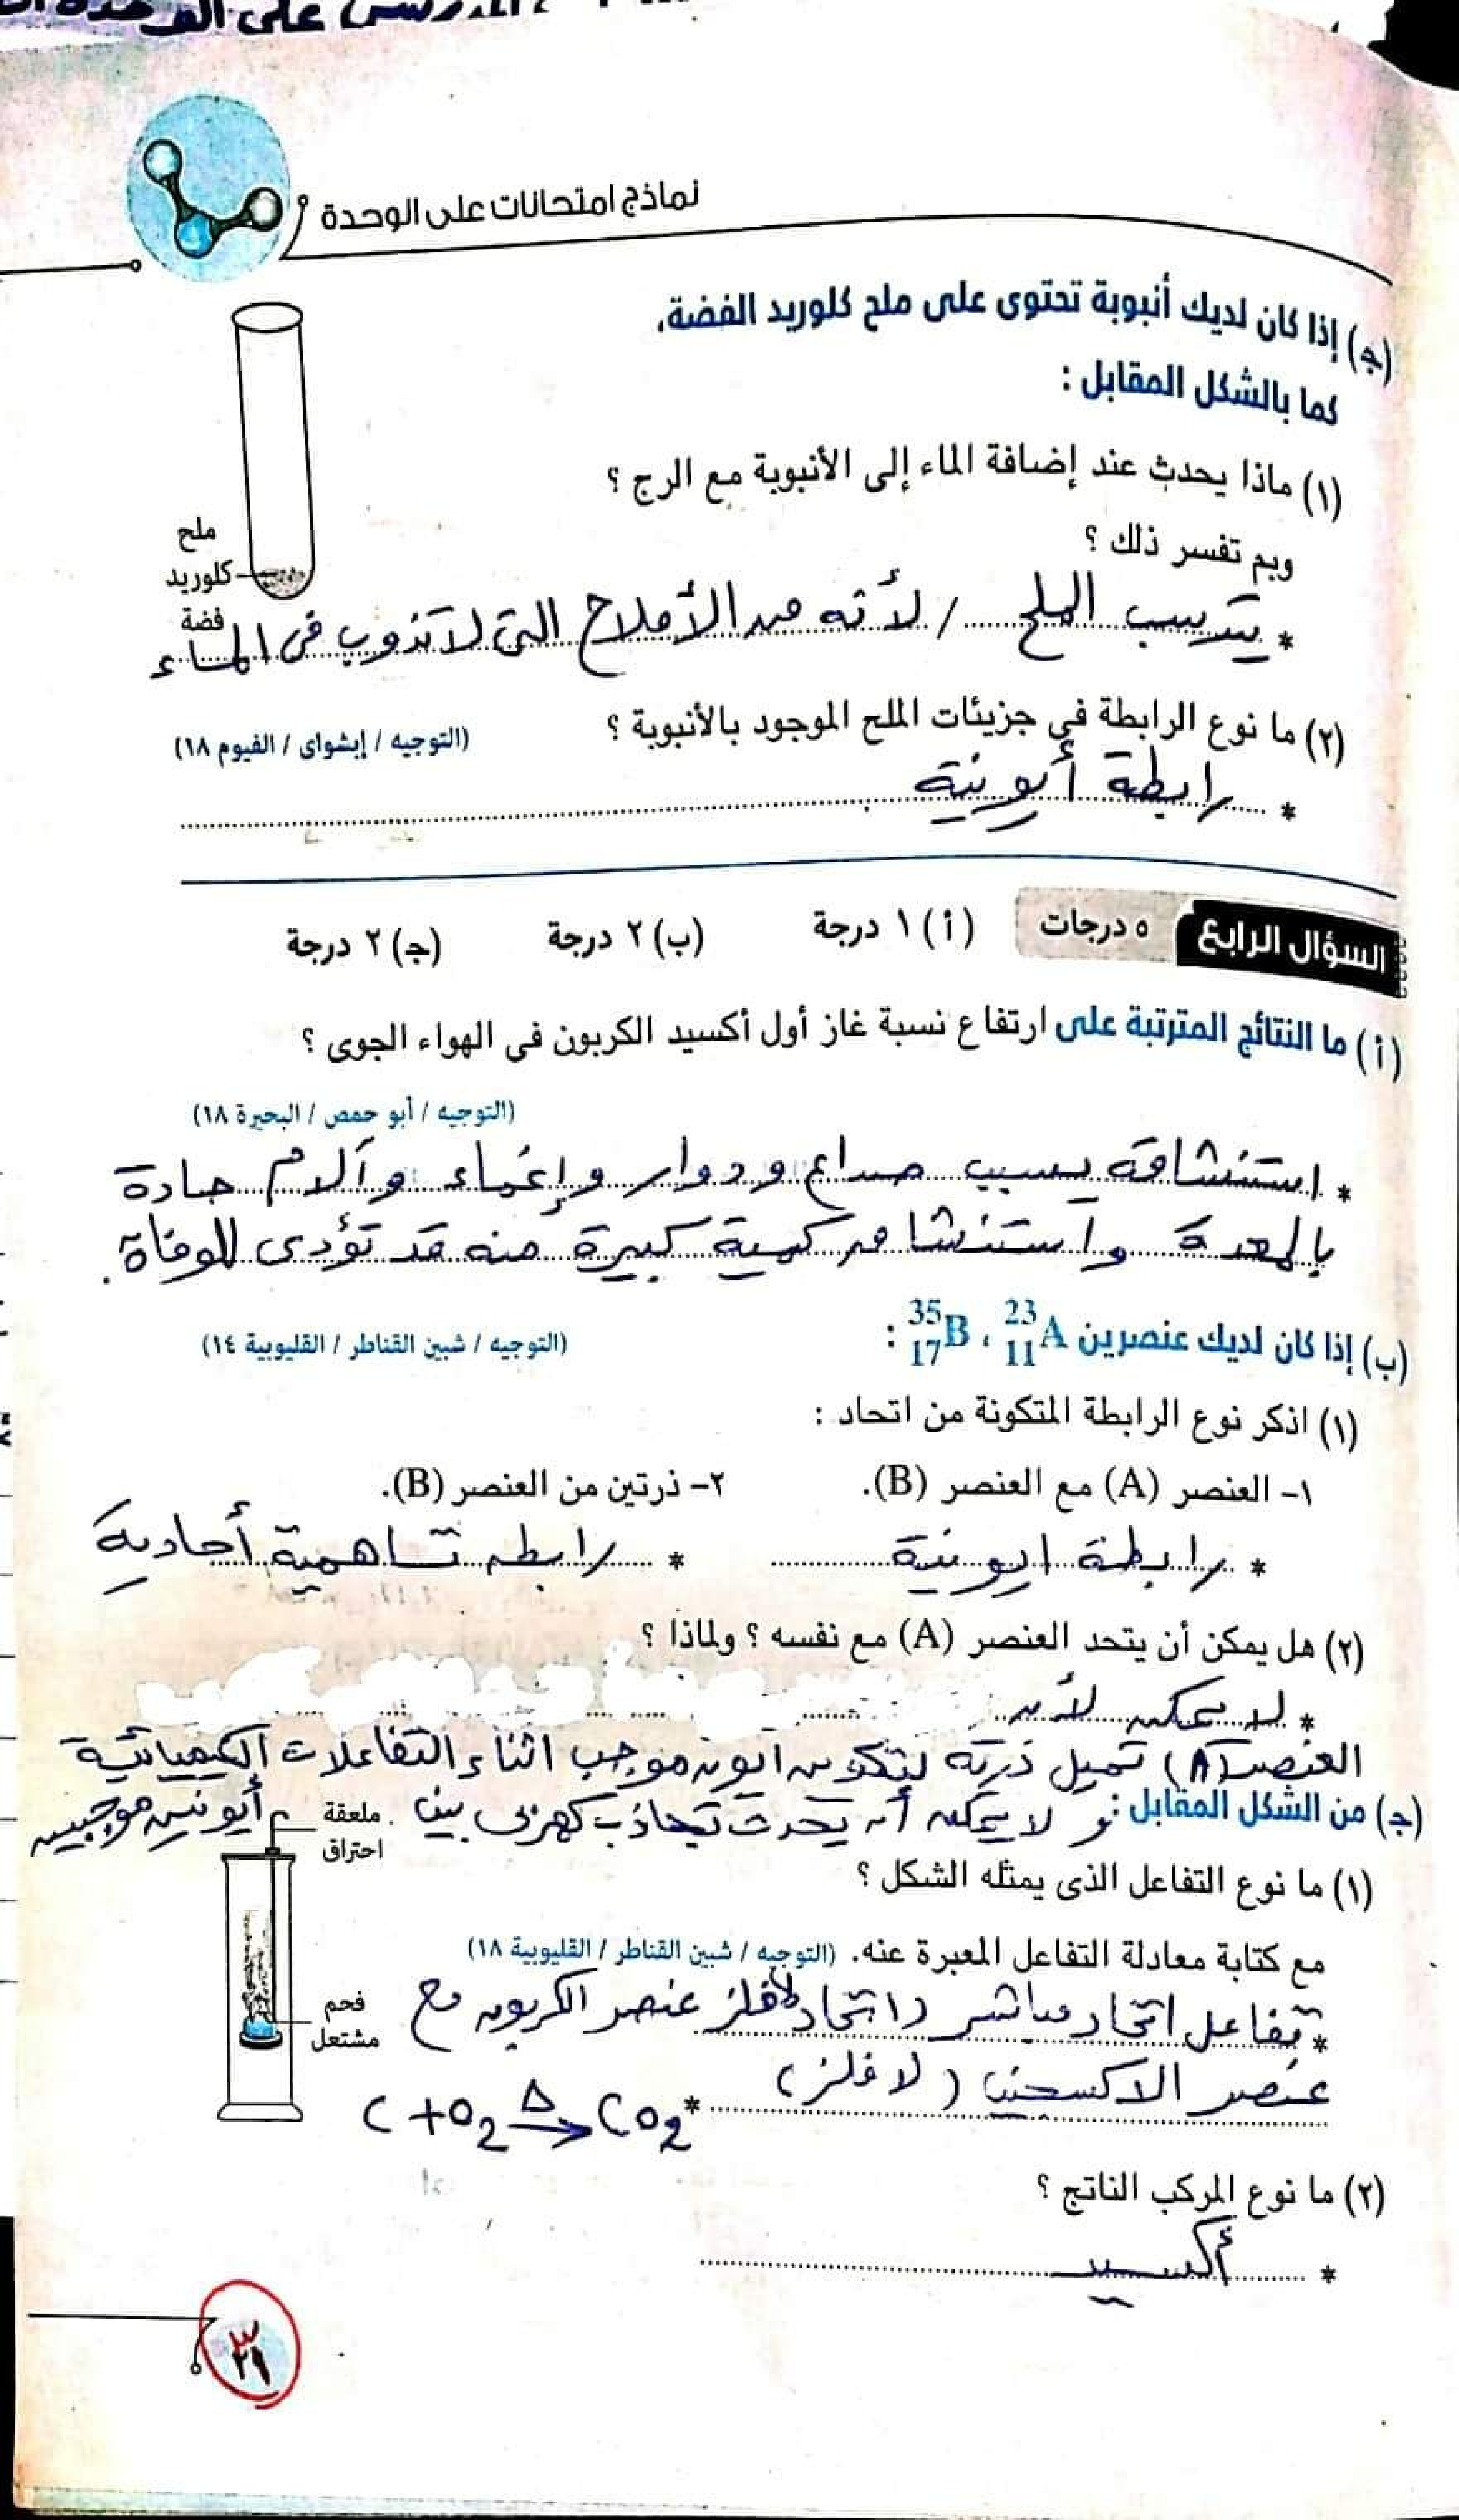 نماذج امتحانات على الوحدة
(جـ) إذا كان لديك أنبوبة تحتوى على ملح كلوريد الفضة،
كما بالشكل المقابل :
(١) ماذا يحدث عند إضافة الماء إلى الأنبوبة مع الرج ؟
وبم تفسر ذلك ؟
ملح
كلوريد
فضة
* يترسب الملح / لأنه من الأملاح التى لا تذوب فى الماء
(٢) ما نوع الرابطة في جزيئات الملح الموجود بالأنبوبة ؟
(التوجيه / إبشواى / الفيوم ١٨)
* رابطة أيونية
السؤال الرابع ٥ درجات (أ) ١ درجة (ب) ٢ درجة (جـ) ٢ درجة
(أ) ما النتائج المترتبة على ارتفاع نسبة غاز أول أكسيد الكربون فى الهواء الجوى ؟
(التوجيه / أبو حمص / البحيرة ١٨)
* استنشاقه يسبب صداع ودوار وإغماء وآلام حادة
بالمعدة واستنشاق كمية كبيرة منه قد تؤدى للوفاة.
(ب) إذا كان لديك عنصرين ²³₁₁A ، ³⁵₁₇B :
(التوجيه / شبين القناطر / القليوبية ١٤)
(١) اذكر نوع الرابطة المتكونة من اتحاد :
١- العنصر (A) مع العنصر (B). ٢- ذرتين من العنصر (B).
* رابطة ايونية * رابطه تساهمية أحادية
(٢) هل يمكن أن يتحد العنصر (A) مع نفسه ؟ ولماذا ؟
* لا يمكن لأن
العنصر (A) تميل ذرته لتكوين ايون موجب اثناء التفاعلات الكيميائية
و لا يمكن أن يحدث تجاذب كهربى بين أيونين موجبين
(جـ) من الشكل المقابل :
ملعقة
احتراق
(١) ما نوع التفاعل الذى يمثله الشكل ؟
مع كتابة معادلة التفاعل المعبرة عنه. (التوجيه / شبين القناطر / القليوبية ١٨)
فحم
مشتعل
* تفاعل اتحاد مباشر (اتحاد لافلز عنصر الكربون مع
عنصر الاكسجين (لافلز)
* C + O₂ →Δ CO₂
(٢) ما نوع المركب الناتج ؟
* أكسيد